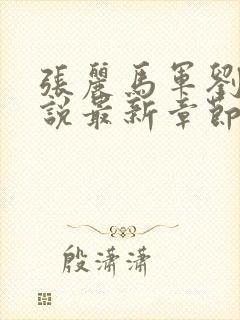 張麗馬軍劉
說最新章節
殷瀟瀟